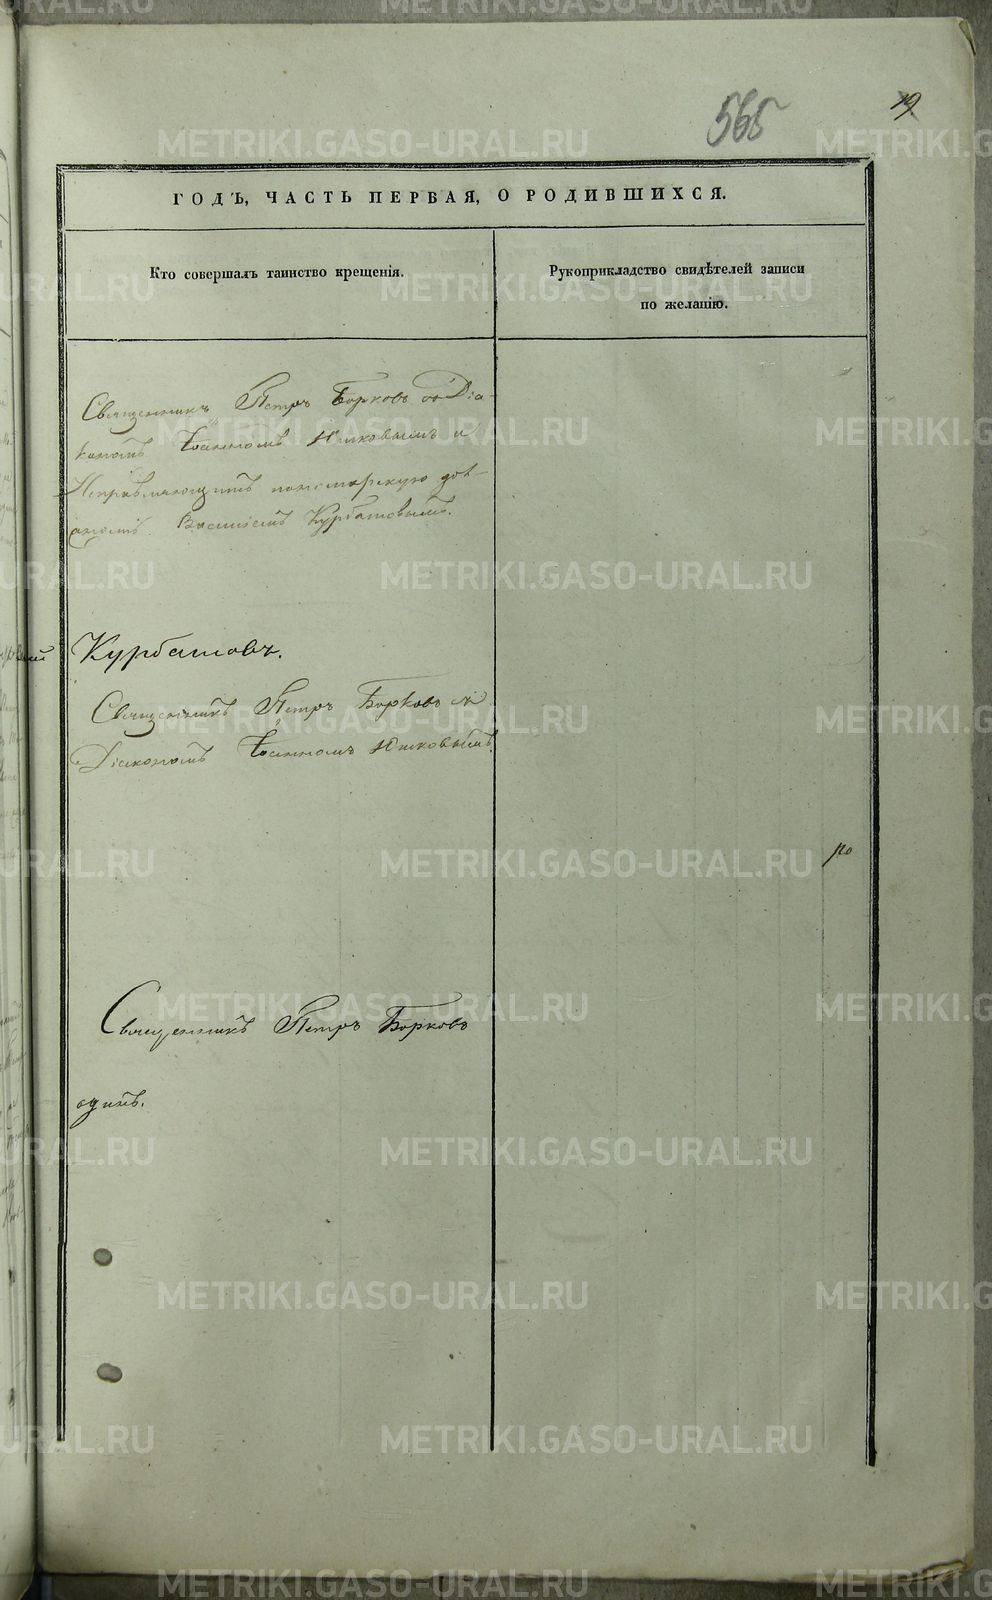 565
19
ГОДЪ, ЧАСТЬ ПЕРВАЯ, О РОДИВШИХСЯ.
Кто совершалъ таинство крещенія.
Рукоприкладство свидѣтелей записи
по желанію.
Священникъ Петръ Борковъ со Діа-
кономъ Іоанномъ Юшковымъ и
Исправляющимъ пономарскую
Василіемъ Курбатовымъ.
Курбатовъ.
Священникъ Петръ Борковъ съ
Діакономъ Іоанномъ Юшковымъ.
ро
Священникъ Петръ Борковъ
одинъ.
METRIKI.GASO-URAL.RU